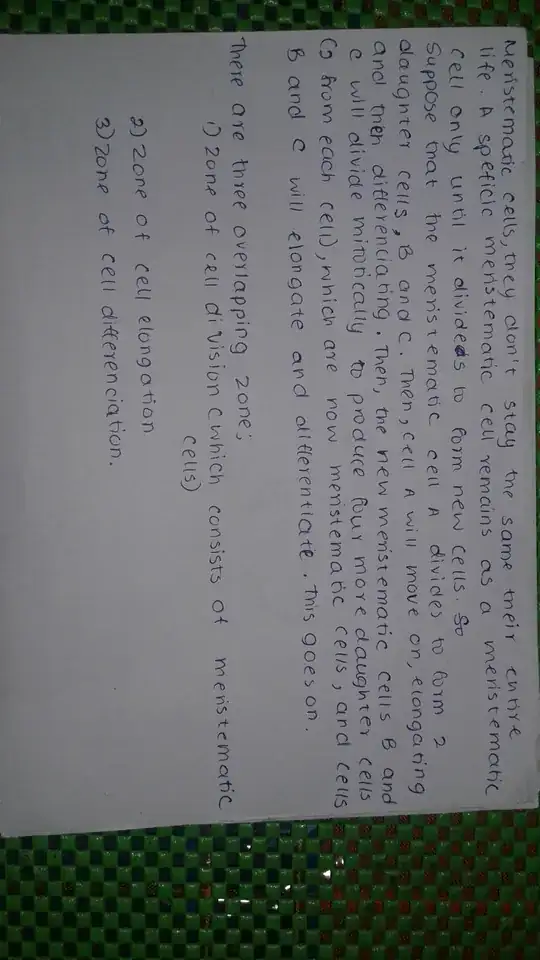 Meristematic cells, they don't stay the same their entire
life. A speficic meristematic cell remains as a meristematic
cell only until it divides to form new cells. So
Suppose that the meristematic cell A divides to form 2
daughter cells, B and C. Then, cell A will move on, elongating
and then differenciating. Then, the new meristematic cells B and
C will divide mitotically to produce four more daughter cells
(2 from each cell), which are now meristematic cells, and cells
B and C will elongate and differentiate. This goes on.
There are three overlapping zone;
1) Zone of cell division (which consists of meristematic
cells)
2) Zone of cell elongation
3) Zone of cell differenciation.